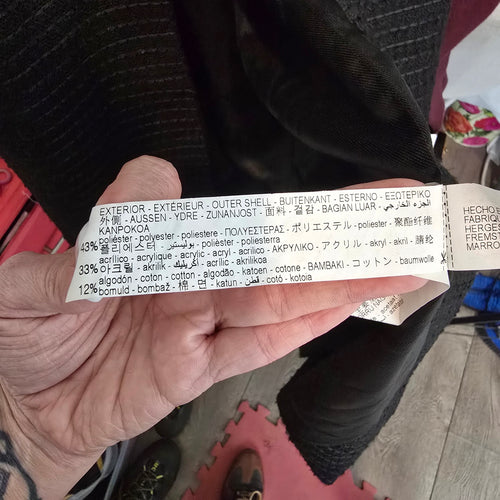 EXTERIOR - EXTÉRIEUR - OUTER SHELL - BUITENKANT - ESTERNO - ΕΞΩΤΕΡΙΚΟ
外側 - AUSSEN - YDRE - ZUNANJOST - 面料 - 겉감 - BAGIAN LUAR - الجزء الخارجي
KANPOKOA
poliéster - polyester - poliestere - ΠΟΛΥΕΣΤΕΡΑΣ - ポリエステル - polyester - 聚酯纤维
43% 폴리에스터 - بوليستر - polièster - poliesterra
acrílico - acrylique - acrylic - acryl - acrilico - ΑΚΡΥΛΙΚΟ - アクリル - akryl - akril - 腈纶
33% 아크릴 - akrilik - أكريليك - acrílic - akrilikoa
algodón - coton - cotton - algodão - katoen - cotone - BAMBAKI - コットン - baumwolle
12% bomuld - bombaž - 棉 - 면 - katun - قطن - cotó - kotoia
HECHO E
FABRIQU
HERGES
FREMST
MARRO